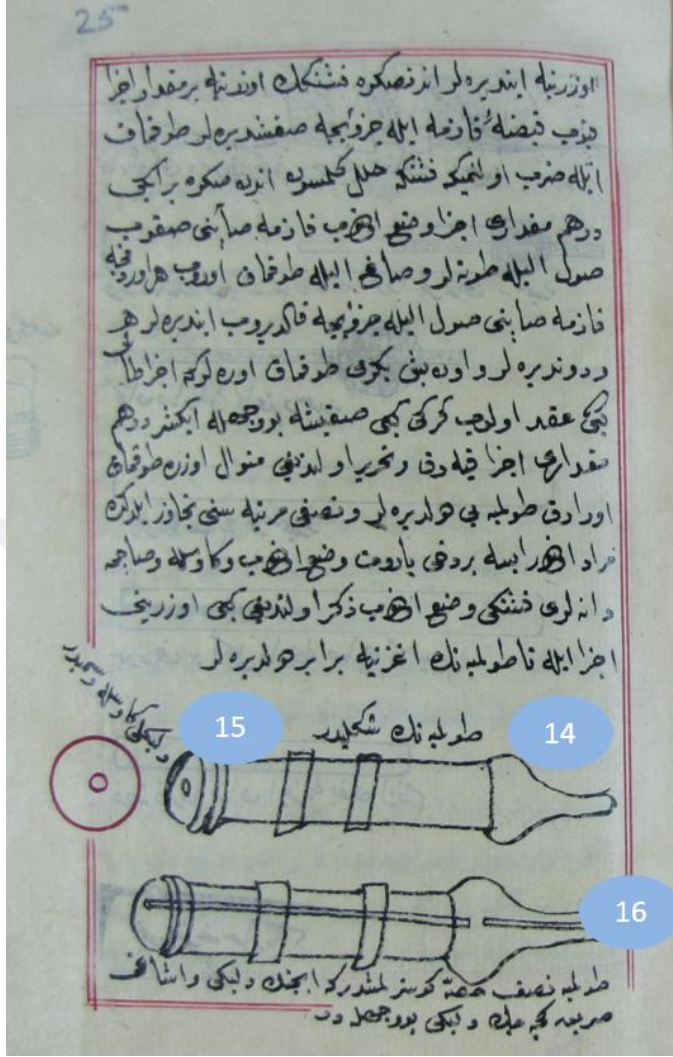 25
اوزرینه ایندیره لر اندنصکره فشنکك اوزرینه برمقدار اجزا
قیوب قبضهٔ قازمه ایله جزؤیجه صقشدیره لر طوقماق
ایله ضرب اولنمیکه فشنکه خلل کلمسون اندن صکره بر ایکی
درهم مقداری اجزا وضع ایدوب قازمه صاپنی صقوب
صول الیله طوته لر و صاغ الیله طوقماق اوروب هر اوردقجه
قازمه صاپنی صول الیله جزؤیجه قالدیروب ایندیره لر هر
ودوندیره لر و اون بش یکرمی طوقماق اوره لرکه اجزا
کبی عقد اولوب کرکی کبی صقیشه بووجهله ایکیشر درهم
مقداری اجزا قیه رق و تحریر اولندیغی منوال اوزره طوقماق
اورارق طولمبه یی طولدیره لر و نصفی مرتبه سنی تجاوز ایلدکده
مراد ایدرایسه بردخی باروت وضع ایدوب وکاوسله وصاچمه
دانه لری فشنکی وضع ایدوب ذکر اولندیغی کبی اوزرینی
اجزا ایله تا طولمبه نك اغزنیه برابر طولدیره لر
دلیکلی کاوسله رسمیدر
15
طولمبه نك شکلیدر
14
16
طولمبه نصف حصه کوسترلمشدرکه ایچنك دلیکی واشاغی
دلیکی بووجهله در